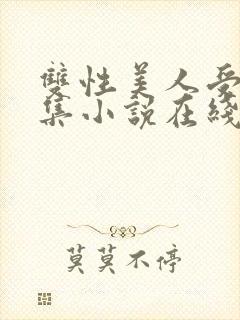 雙性美人受
集小說在綫
莫莫不停